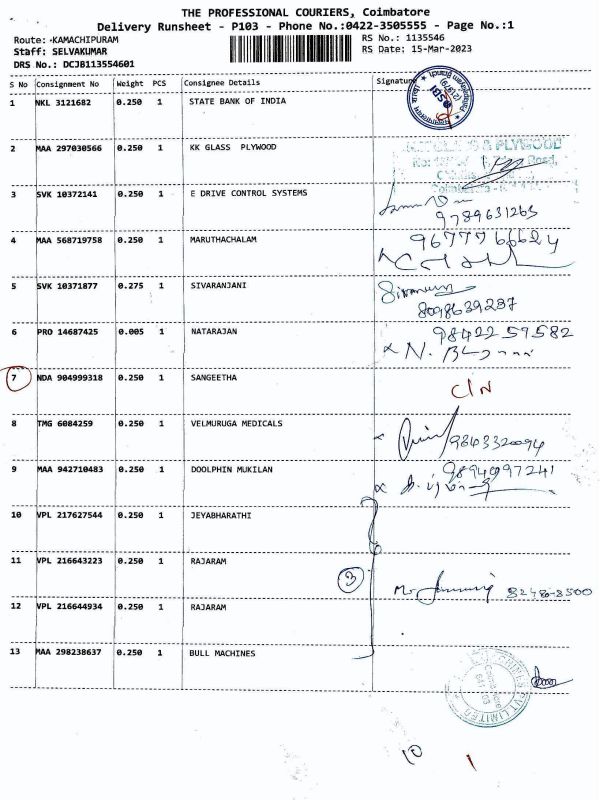 THE PROFESSIONAL COURIERS, Coimbatore
Delivery Runsheet - P103 - Phone No.:0422-3505555 - Page No.:1
Route: -KAMACHIPURAM RS No.: 1135546
Staff: SELVAKUMAR RS Date: 15-Mar-2023
DRS No.: DCJB113554601
S No Consignment No Weight PCS Consignee Details Signature
1 NKL 3121682 0.250 1 STATE BANK OF INDIA
SBI
2 MAA 297030566 0.250 1 KK GLASS PLYWOOD
& PLYWOOD
Road,
3 SVK 10372141 0.250 1 E DRIVE CONTROL SYSTEMS
9789631263
4 MAA 568719758 0.250 1 MARUTHACHALAM
5 SVK 10371877 0.275 1 SIVARANJANI
Sivaranj
8098639287
6 PRO 14687425 0.005 1 NATARAJAN
98422 59582
7 NDA 904999318 0.250 1 SANGEETHA C/N
8 TMG 6084259 0.250 1 VELMURUGA MEDICALS
9843320094
9 MAA 942710483 0.250 1 DOOLPHIN MUKILAN
9894097241
10 VPL 217627544 0.250 1 JEYABHARATHI
11 VPL 216643223 0.250 1 RAJARAM
3
8248-8500
12 VPL 216644934 0.250 1 RAJARAM
13 MAA 298238637 0.250 1 BULL MACHINES
10 1